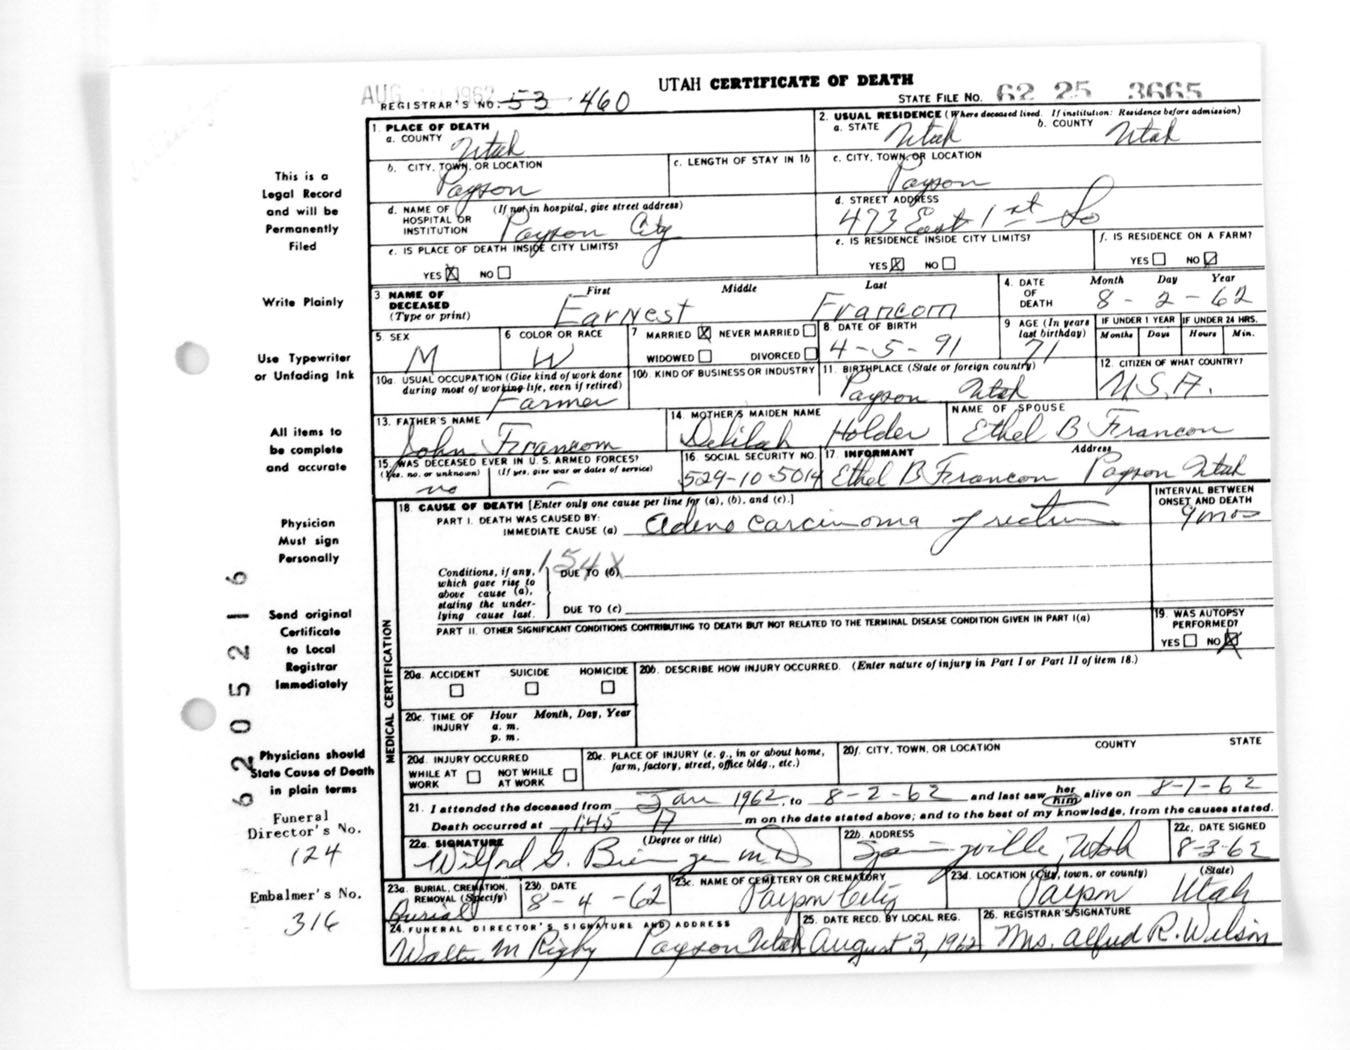 UTAH CERTIFICATE OF DEATH
AUG 1962
REGISTRAR'S NO. 53 460
STATE FILE NO. 62 25 3665
1. PLACE OF DEATH
a. COUNTY Utah
2. USUAL RESIDENCE (Where deceased lived. If institution: Residence before admission)
a. STATE Utah b. COUNTY Utah
b. CITY, TOWN, OR LOCATION Payson
c. LENGTH OF STAY IN 1b
c. CITY, TOWN, OR LOCATION Payson
d. NAME OF HOSPITAL OR INSTITUTION (If not in hospital, give street address) Payson City
d. STREET ADDRESS 473 East 1st So
e. IS PLACE OF DEATH INSIDE CITY LIMITS?
YES X NO
e. IS RESIDENCE INSIDE CITY LIMITS?
YES X NO
f. IS RESIDENCE ON A FARM?
YES NO
3. NAME OF DECEASED (Type or print)
First Middle Last
Earnest Francom
4. DATE OF DEATH Month Day Year
8-2-62
5. SEX M
6 COLOR OR RACE W
7 MARRIED X NEVER MARRIED
WIDOWED DIVORCED
8 DATE OF BIRTH 4-5-91
9 AGE (In years last birthday) 71
IF UNDER 1 YEAR Months Days
IF UNDER 24 HRS. Hours Min.
10a. USUAL OCCUPATION (Give kind of work done during most of working life, even if retired) Farmer
10b. KIND OF BUSINESS OR INDUSTRY
11. BIRTHPLACE (State or foreign country) Payson Utah
12. CITIZEN OF WHAT COUNTRY? U.S.A.
13. FATHER'S NAME John Francom
14. MOTHER'S MAIDEN NAME Delilah Holder
NAME OF SPOUSE Ethel B Francon
15. WAS DECEASED EVER IN U. S. ARMED FORCES?
(Yes, no, or unknown) (If yes, give war or dates of service)
no -
16. SOCIAL SECURITY NO. 529-10-5014
17. INFORMANT Address
Ethel B Francon Payson Utah
18. CAUSE OF DEATH [Enter only one cause per line for (a), (b), and (c).]
PART I. DEATH WAS CAUSED BY:
IMMEDIATE CAUSE (a) Adeno carcinoma of rectum
INTERVAL BETWEEN ONSET AND DEATH
9 mos
154X
Conditions, if any, which gave rise to above cause (a), stating the underlying cause last.
DUE TO (b)
DUE TO (c)
PART II. OTHER SIGNIFICANT CONDITIONS CONTRIBUTING TO DEATH BUT NOT RELATED TO THE TERMINAL DISEASE CONDITION GIVEN IN PART I(a)
19. WAS AUTOPSY PERFORMED?
YES NO X
MEDICAL CERTIFICATION
20a. ACCIDENT SUICIDE HOMICIDE
20b. DESCRIBE HOW INJURY OCCURRED. (Enter nature of injury in Part I or Part II of item 18.)
20c. TIME OF INJURY Hour a. m. p. m. Month, Day, Year
20d. INJURY OCCURRED
WHILE AT WORK NOT WHILE AT WORK
20e. PLACE OF INJURY (e. g., in or about home, farm, factory, street, office bldg., etc.)
20f. CITY, TOWN, OR LOCATION COUNTY STATE
21. I attended the deceased from Jan 1962, to 8-2-62 and last saw her him alive on 8-1-62
Death occurred at 1:45 A m on the date stated above; and to the best of my knowledge, from the causes stated.
22a. SIGNATURE (Degree or title)
Wilford G. M D
22b. ADDRESS Springville, Utah
22c. DATE SIGNED 8-3-62
23a. BURIAL, CREMATION, REMOVAL (Specify) Burial
23b. DATE 8-4-62
23c. NAME OF CEMETERY OR CREMATORY Payson City
23d. LOCATION (City, town, or county) (State)
Payson Utah
24. FUNERAL DIRECTOR'S SIGNATURE AND ADDRESS
Walter M Rigby Payson Utah
25. DATE RECD. BY LOCAL REG. August 3, 1962
26. REGISTRAR'S SIGNATURE
Mrs. Alfred R. Wilson
This is a
Legal Record
and will be
Permanently
Filed
Write Plainly
Use Typewriter
or Unfading Ink
All items to
be complete
and accurate
Physician
Must sign
Personally
Send original
Certificate
to Local
Registrar
Immediately
Physicians should
State Cause of Death
in plain terms
Funeral
Director's No.
124
Embalmer's No.
316
6205216